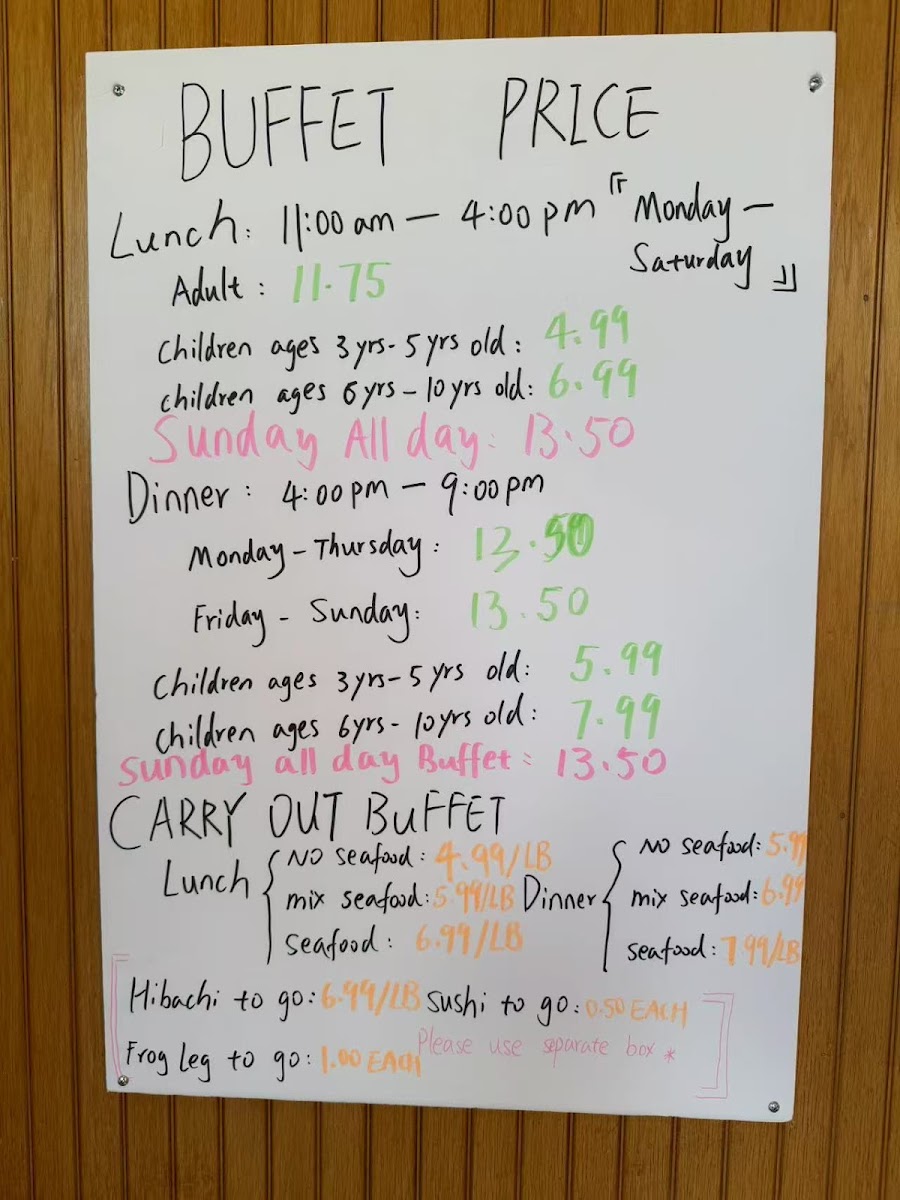 BUFFET PRICE
Lunch: 11:00 am — 4:00 pm 『Monday —
Saturday』
Adult: 11.75
Children ages 3yrs - 5yrs old: 4.99
children ages 6yrs - 10yrs old: 6.99
Sunday All day: 13.50
Dinner: 4:00pm — 9:00pm
Monday - Thursday: 13.50
Friday - Sunday: 13.50
Children ages 3yrs - 5yrs old: 5.99
Children ages 6yrs - 10yrs old: 7.99
Sunday all day Buffet: 13.50
CARRY OUT BUFFET
Lunch { NO seafood: 4.99/LB
mix seafood: 5.99/LB
seafood: 6.99/LB
Dinner { NO seafood: 5.99
mix seafood: 6.99
seafood: 7.99/LB
Hibachi to go: 6.99/LB Sushi to go: 0.50 EACH
Frog Leg to go: 1.00 EACH Please use separate box *